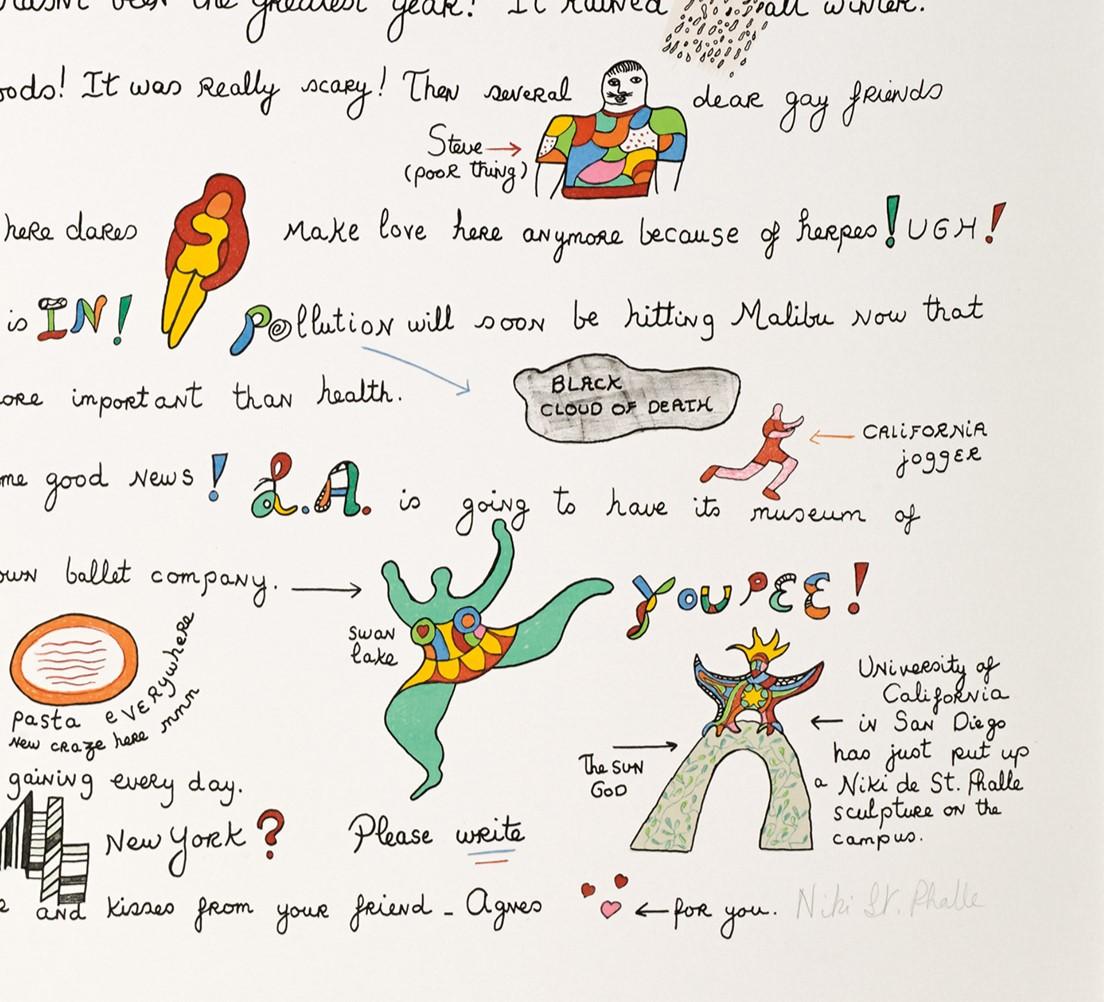 been the greatest year! It rained all winter.
It was really scary! Then several dear gay friends
Steve
(poor thing)
here dares make love here anymore because of herpes! UGH!
is IN! Pollution will soon be hitting Malibu now that
important than health.
BLACK
CLOUD OF DEATH
CALIFORNIA
jogger
good news! L.A. is going to have its museum of
own ballet company. YOUPEE!
swan
lake
pasta everywhere
new craze here mnn
The SUN
GOD
University of
California
in San Diego
has just put up
a Niki de St. Phalle
sculpture on the
campus.
gaining every day.
New York? Please write
and kisses from your friend - Agnes for you. Niki St. Phalle